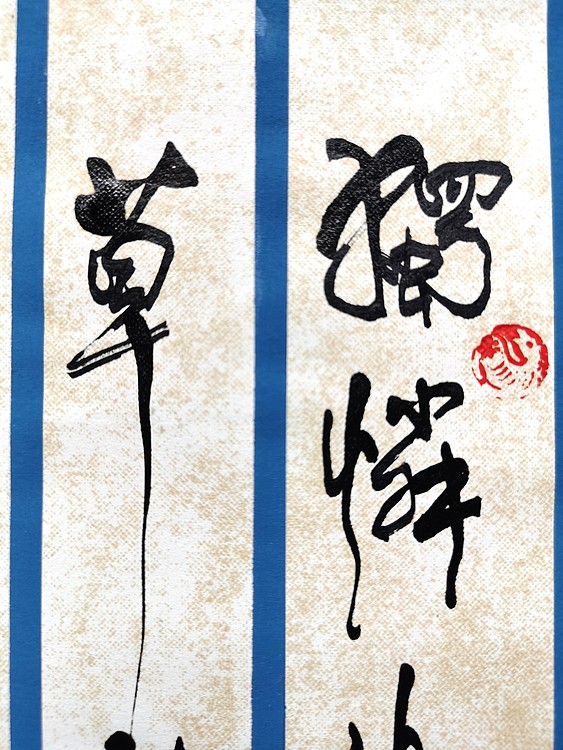 獨憐
草